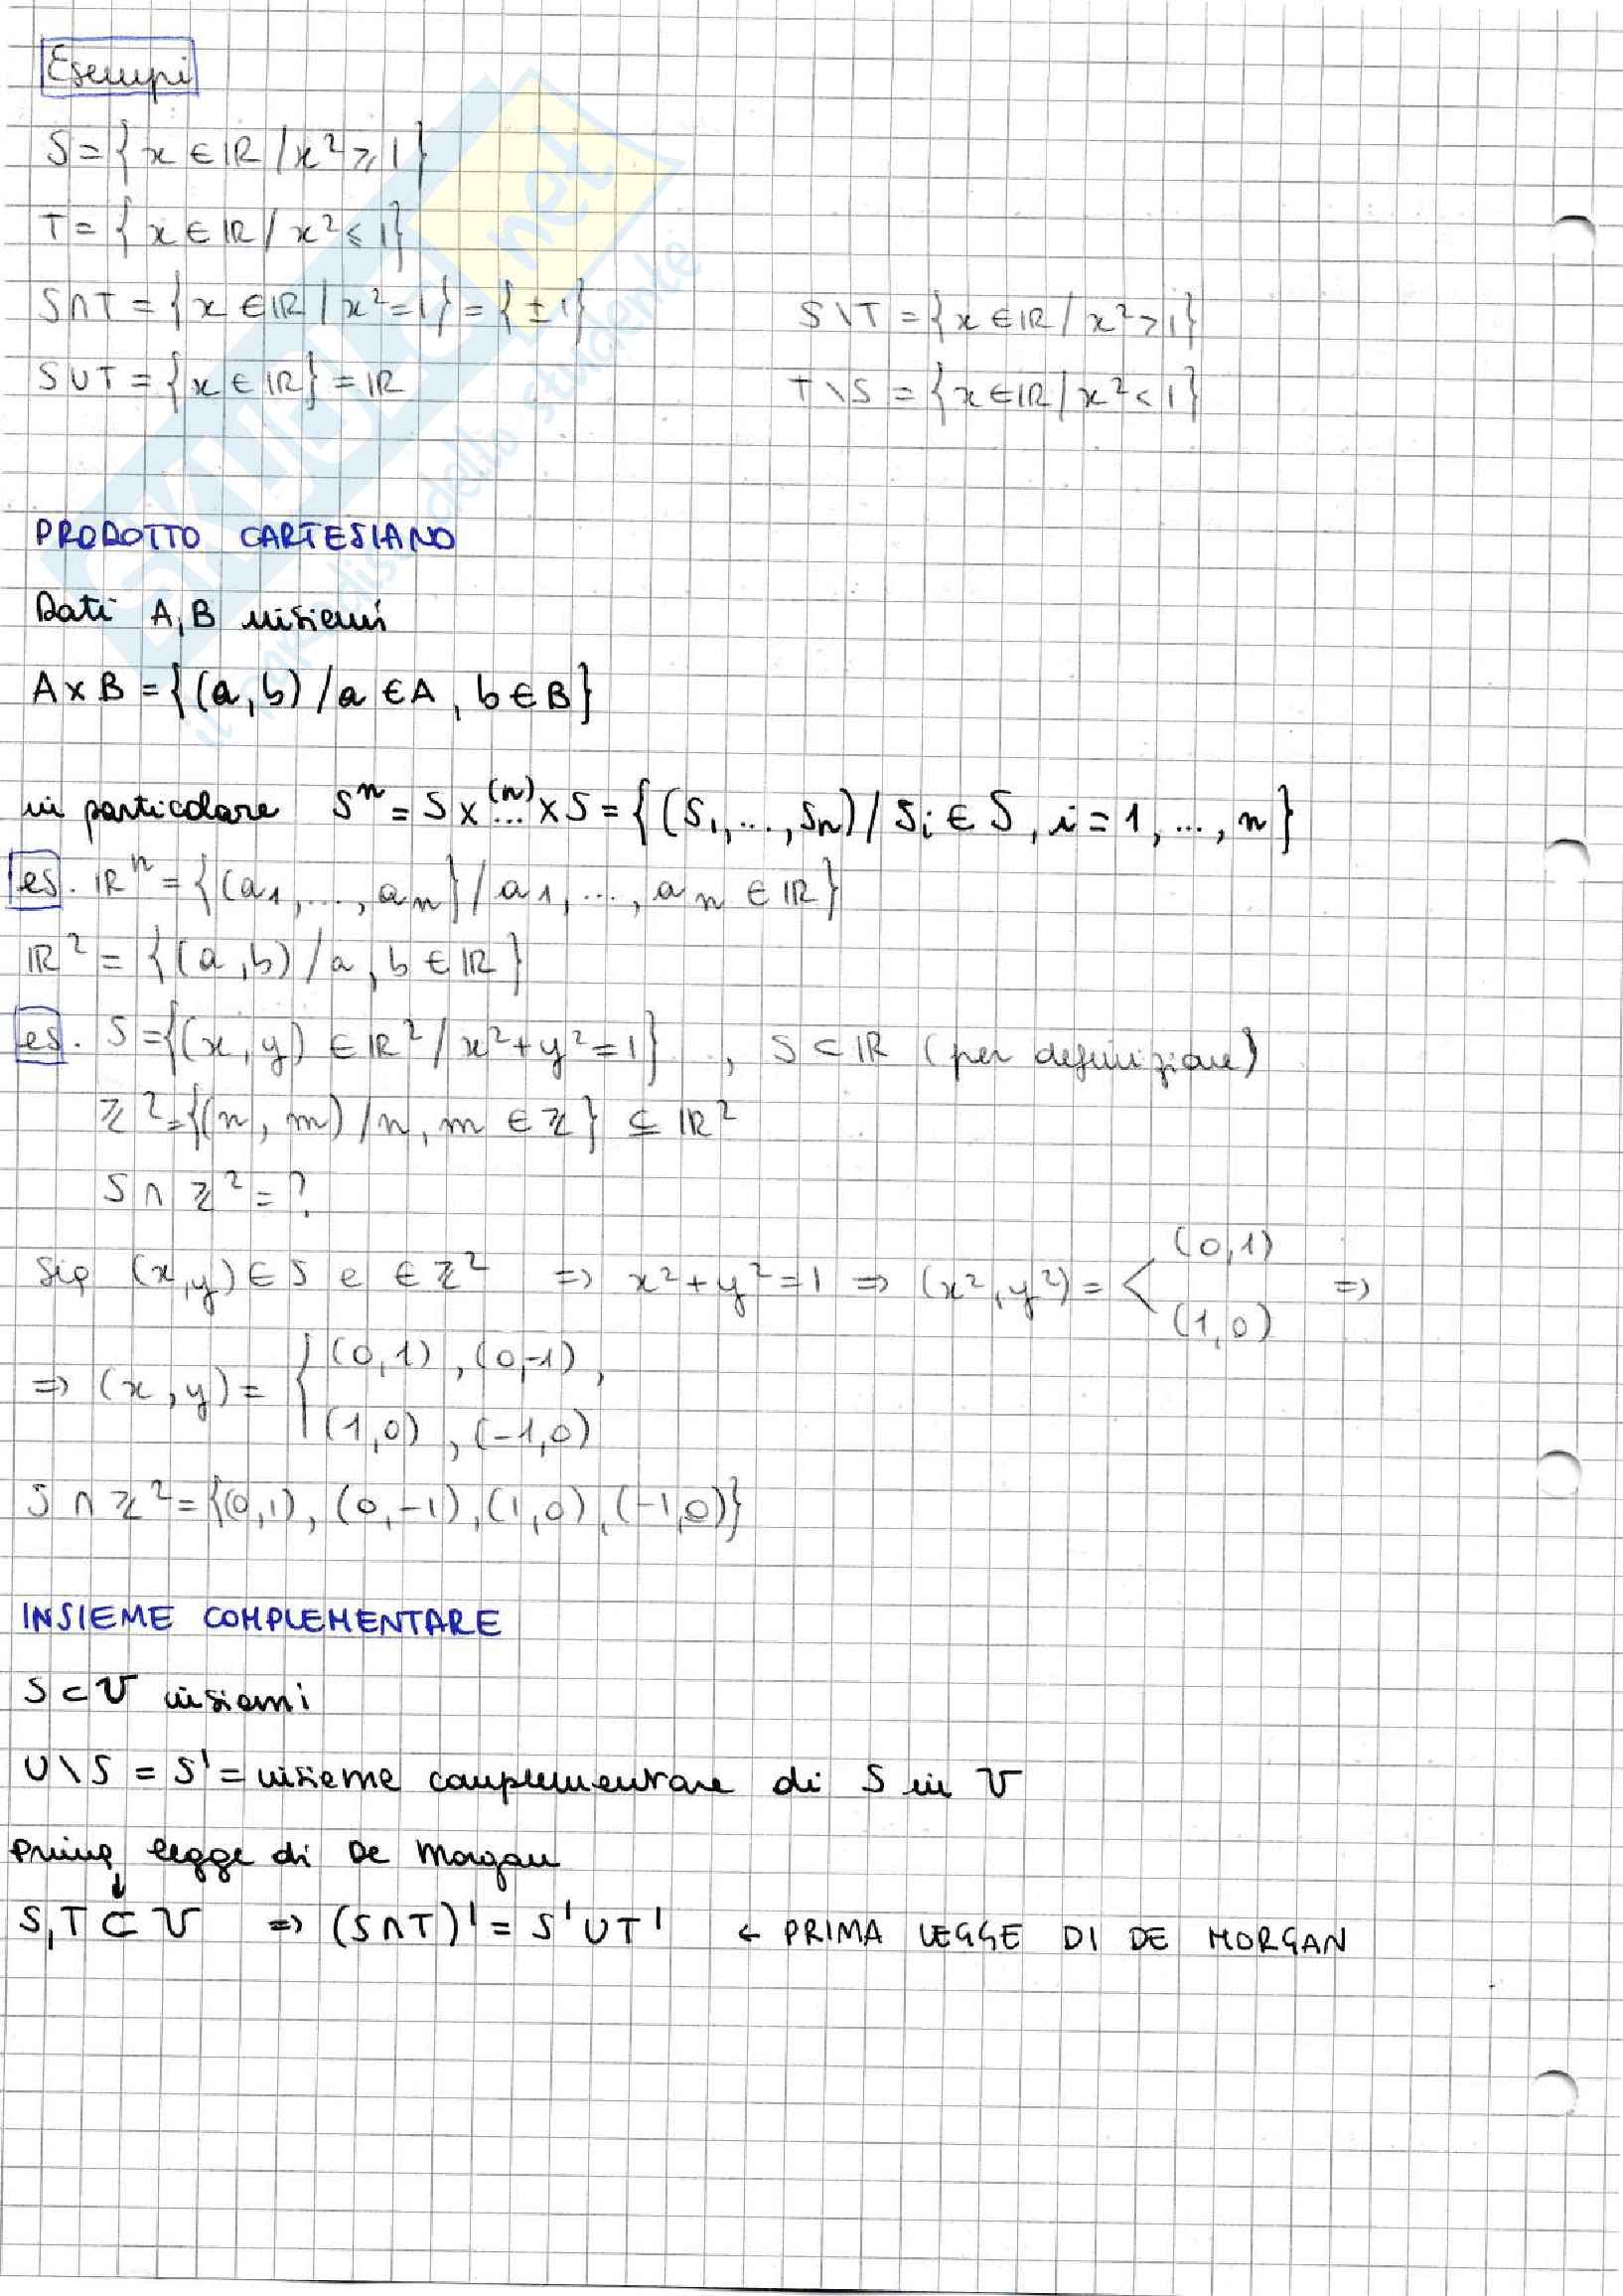 Esempi
S = {x ∈ ℝ / x² ⩾ 1}
T = {x ∈ ℝ / x² ⩽ 1}
S∩T = {x ∈ ℝ / x² = 1} = {±1}
S\T = {x ∈ ℝ / x² > 1}
S∪T = {x ∈ ℝ} = ℝ
T\S = {x ∈ ℝ / x² < 1}
PRODOTTO CARTESIANO
Dati A, B insiemi
A×B = {(a, b) / a ∈ A, b ∈ B}
in particolare Sⁿ = S × (n)... × S = {(s₁, ..., sₙ) / sᵢ ∈ S, i = 1, ..., n}
es. ℝⁿ = {(a₁, ..., aₙ} / a₁, ..., aₙ ∈ ℝ}
ℝ² = {(a, b) / a, b ∈ ℝ}
es. S = {(x, y) ∈ ℝ² / x² + y² = 1} , S ⊂ ℝ (per definizione)
ℤ² = {(n, m) / n, m ∈ ℤ} ⊆ ℝ²
S ∩ ℤ² = ?
Sia (x, y) ∈ S e ∈ ℤ² ⇒ x² + y² = 1 ⇒ (x², y²) = < (0,1) (1,0) ⇒
⇒ (x, y) = { (0,1), (0,-1),
(1,0), (-1,0)
S ∩ ℤ² = {(0,1), (0,-1), (1,0), (-1,0)}
INSIEME COMPLEMENTARE
S ⊂ U insiemi
U\S = S' = insieme complementare di S in U
Prima legge di De Morgan
↓
S, T ⊂ U ⇒ (S∩T)' = S' ∪ T' ← PRIMA LEGGE DI DE MORGAN
Skuola.net
il paradiso dello studente